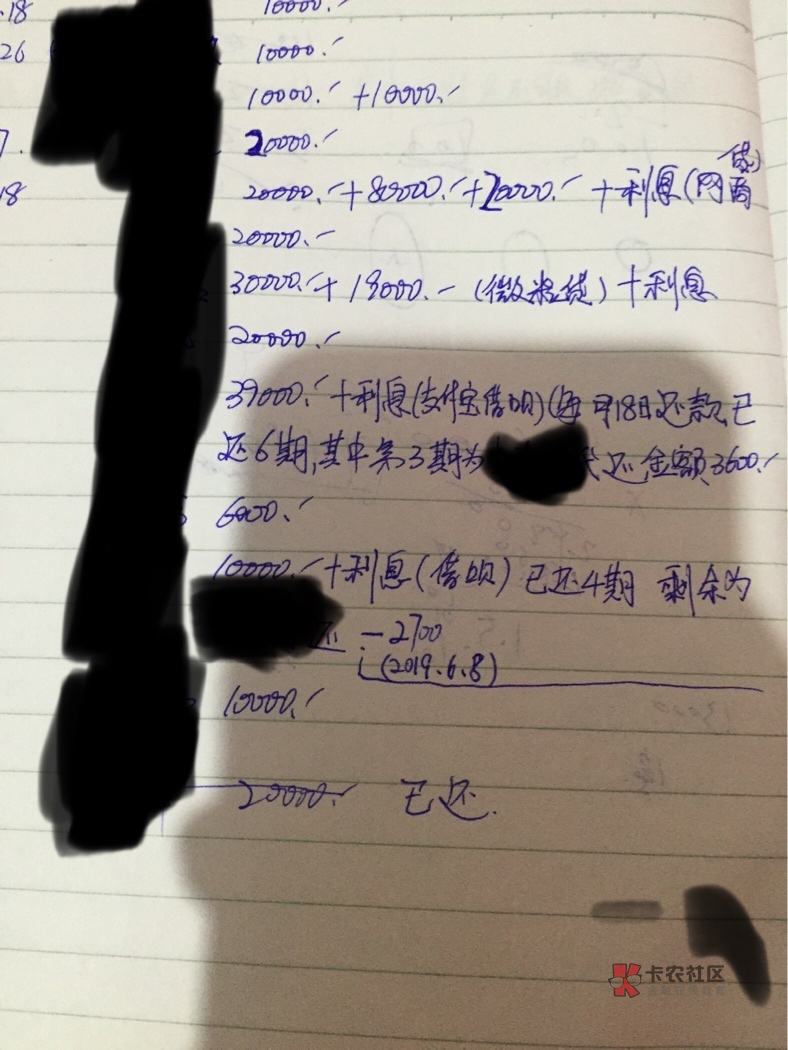 .18 10000.-
26 10000.-
10000.- +10000.-
7. 20000.-
贷)
18 20000.- +80000.- +20000.- +利息(网商
20000.-
30000.- + 19000.- (微粒贷) +利息
20000.-
39000.- +利息(支付宝借呗)(每月18日还款,已
还6期,其中第3期为 还金额3600.-
6000.-
10000.- +利息(借呗) 已还4期 剩余为
还 -2700
(2019.6.8)
10000.-
20000.- 已还.
卡农社区